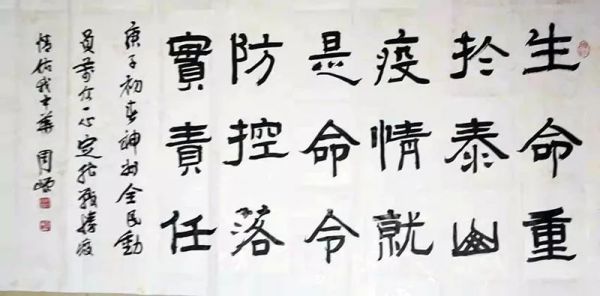 生命重
於泰山
疫情就
是命令
防控落
實責任
庚子初春神州全民動
員萬众一心定能戰勝疫
情佑我中華 周